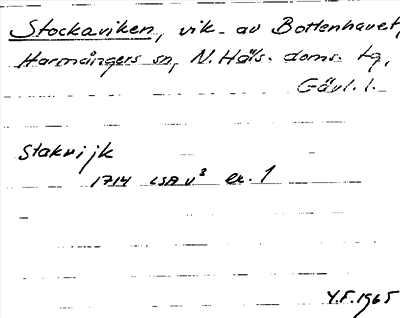 Stockaviken, vik av Bottenhavet,
Harmångers sn, N. Häls. doms. tg,
Gävl. l.
Stakvijk
1714 LSA V³ ex. 1
Y.F. 1965